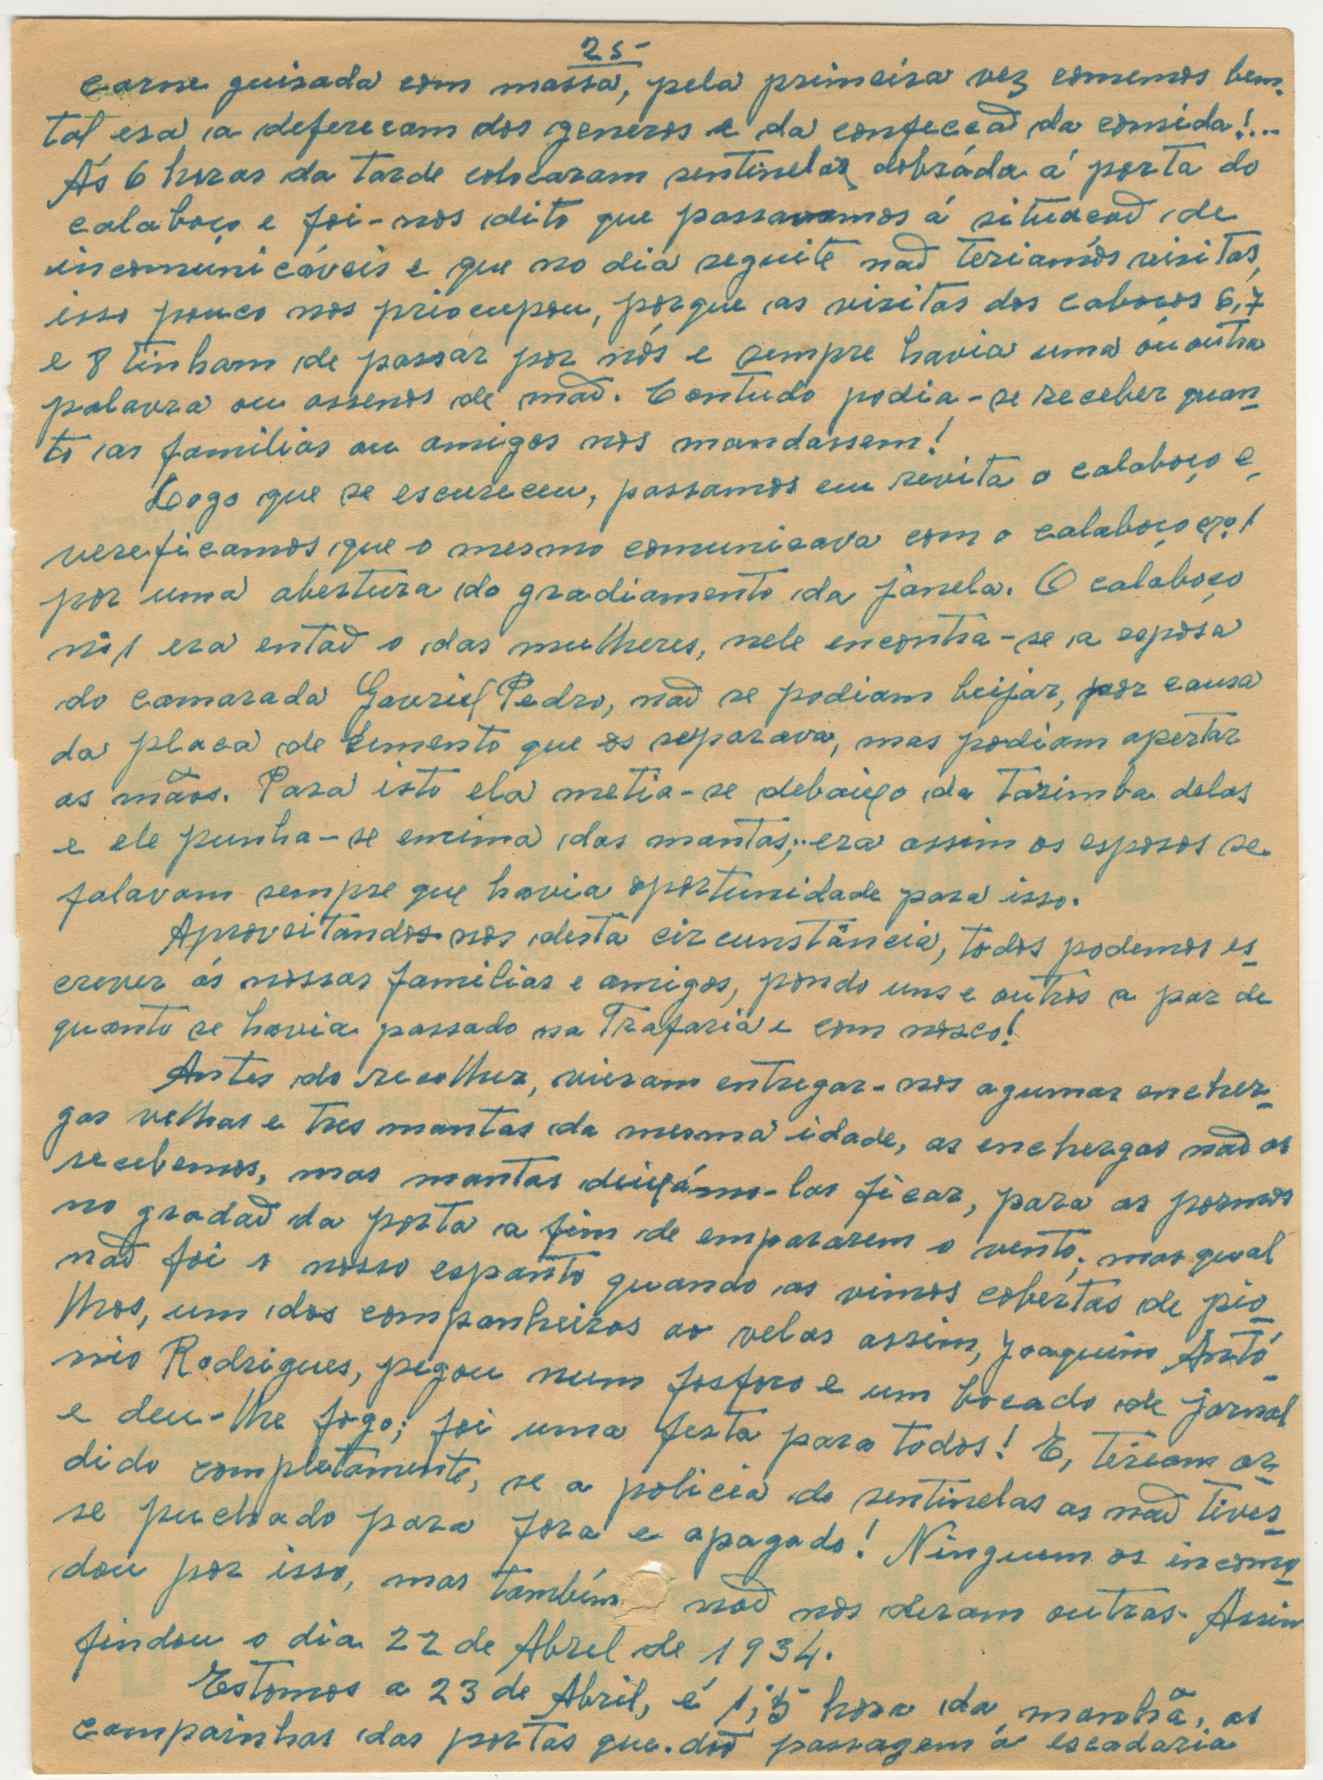 25-
carne guisada com massa, pela primeira vez comemos bem,
tal era a deferecam dos generos e da confecçaõ da comida!...
Ás 6 horas da tarde colocaram sentinelas dobráda á porta do
calaboço e foi-nos dito que passavamos á situaçaõ de
incomunicáveis e que no dia seguite naõ teriamos visitas,
isso pouco nos priocupou, porque as visitas dos caboços 6,7
e 8 tinham de passar por nós e sempre havia uma óu outra
palavra ou assenos de maõ. Contudo podia-se receber quan-
to as familias ou amigos nos mandassem!
Logo que se escureceu, passamos em revita o calaboço e,
vereficamos que o mesmo comunicava com o calaboço nº 1
por uma abertura do gradiamento da janela. O calaboço
nº 1 era entaõ o das mulheres, nele encontra-se a esposa
do camarada Gavriel Pedro, naõ se podiam beijar, por causa
da placa de cimento que os separava, mas podiam apertar
as mãos. Para isto ela metia-se debaixo da tarimba delas
e ele punha-se emcima das mantas; era assim os esposos se
falavam sempre que havia oportunidade para isso.
Aproveitandos-nos desta circunstância, todos podemos es-
crever ás nossas familias e amigos, pondo uns e outros a par de
quanto se havia passado na Trafaria e com nosco!
Antes do recolher, vieram entregar-nos agumas encher-
gas velhas e tres mantas da mesma idade, as enchergas naõ as
recebemos, mas mantas deixámo-las ficar, para as pormos
no gradaõ da porta a fim de empararem o vento; mas qual
naõ foi o nosso espanto quando as vimos cobertas de pio-
lhos, um dos companheiros ao velas assim, Joaquim Antó-
nio Rodrigues, pegou num fosforo e um bocado de jornal
e deu-lhe fogo; foi uma festa para todos! E, teriam ar-
dido completamente, se a policia do sentinelas as naõ tives-
se puchado para fora e apagado! Ninguem os incomo-
dou por isso, mas também naõ nos deram outras. Assim
findou o dia 22 de Abril de 1934.
Estomos a 23 de Abril, é 1,5 hora da manhã, as
campainhas das portas que daõ passagem á escadaria